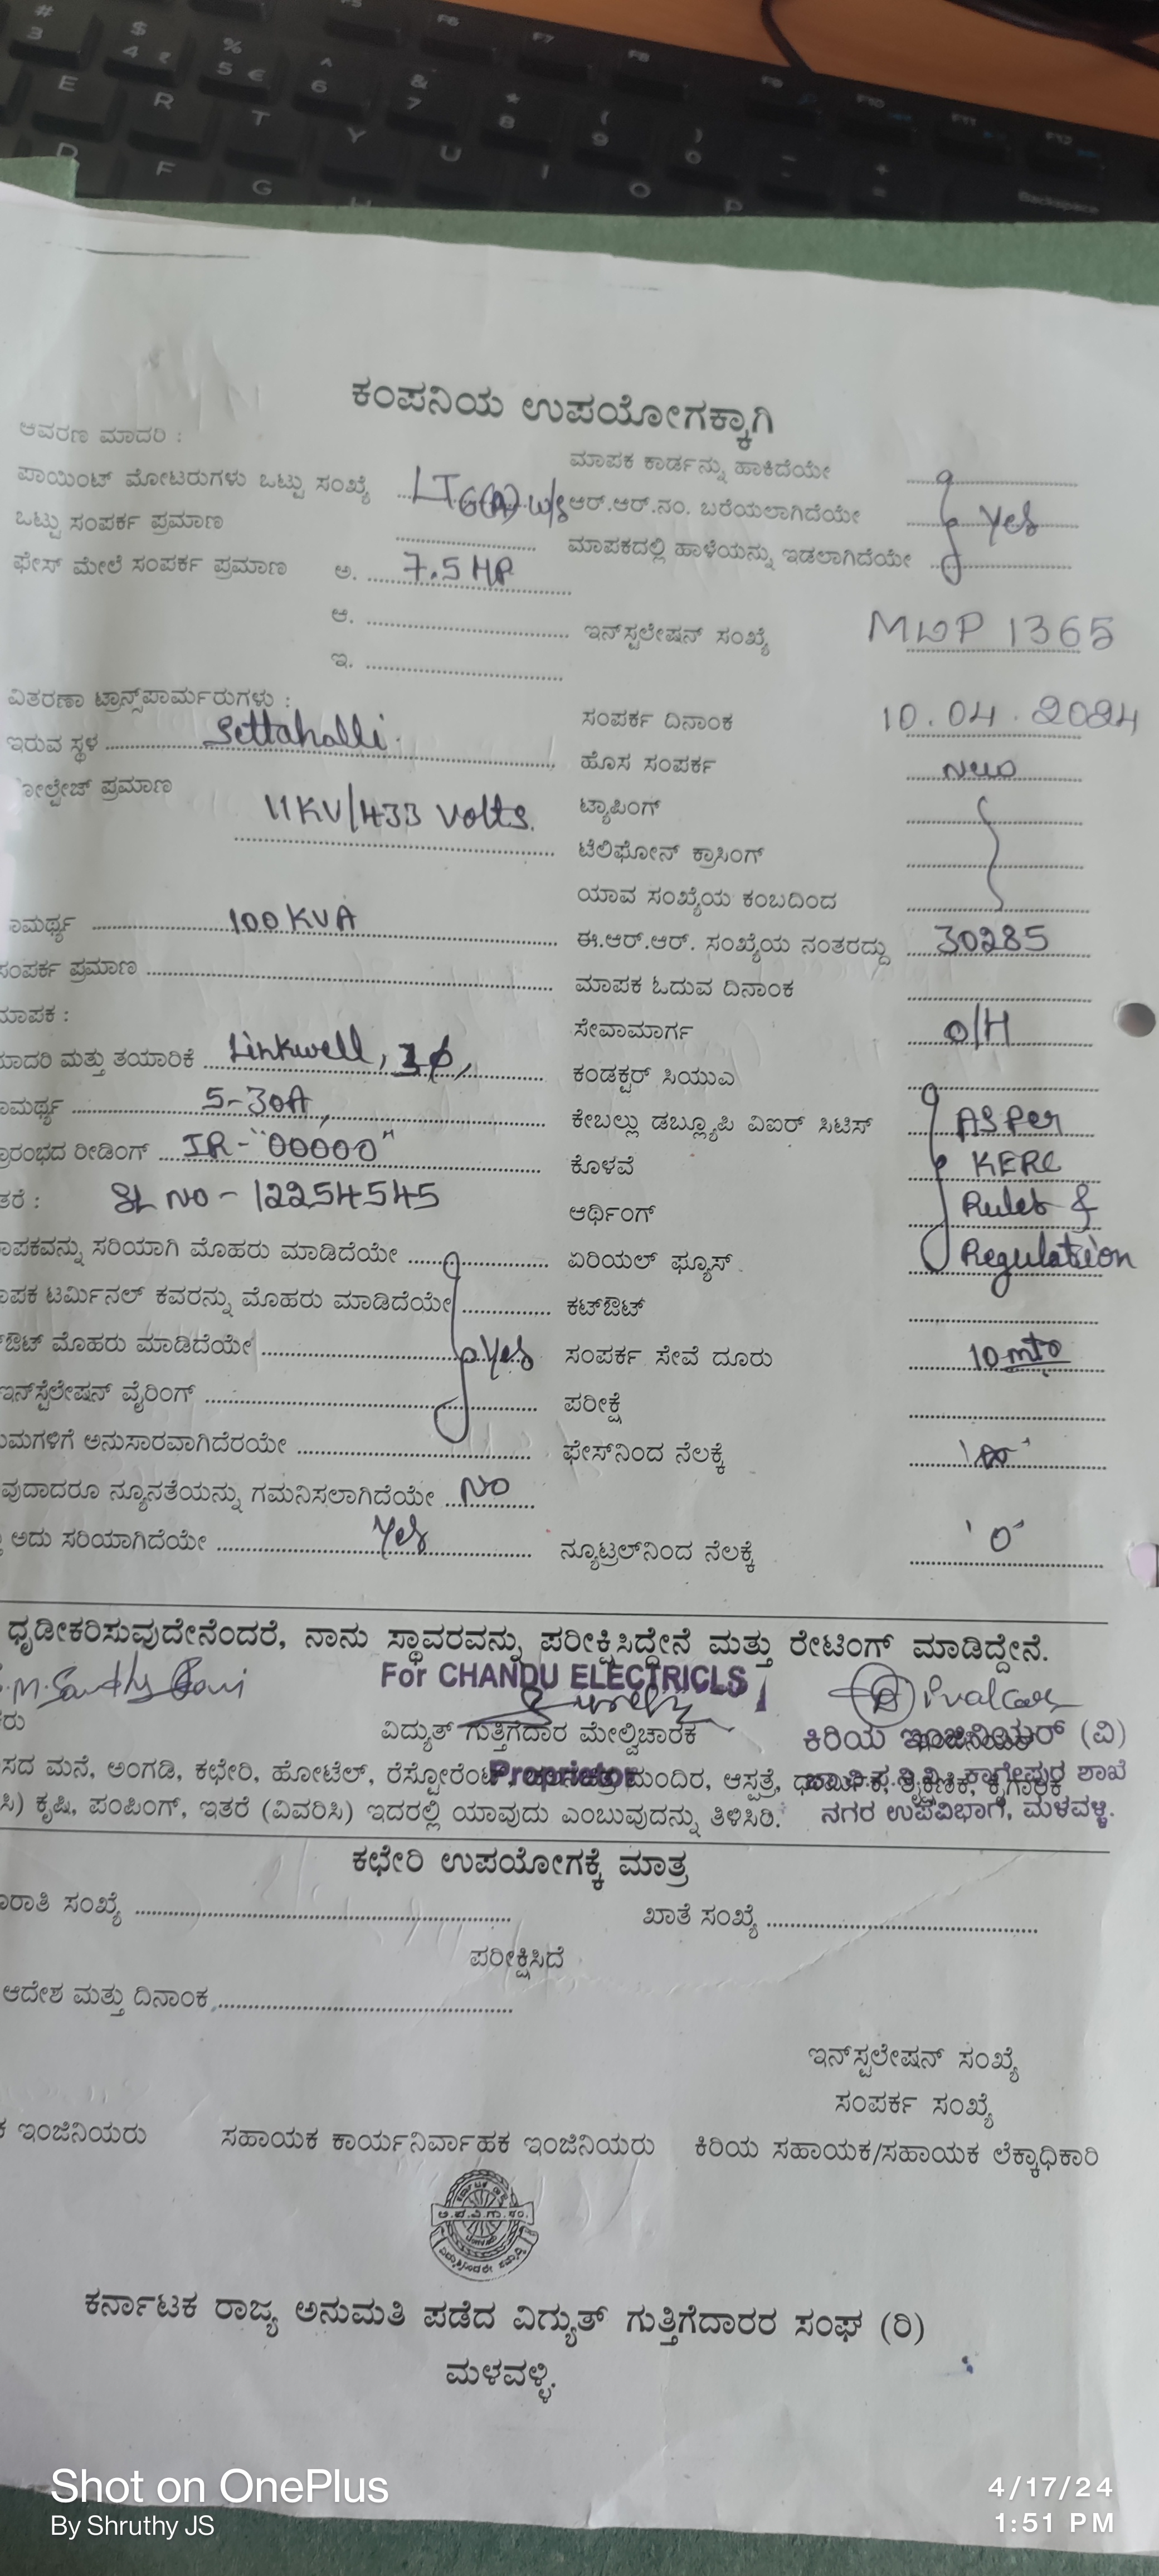 ಕಂಪನಿಯ ಉಪಯೋಗಕ್ಕಾಗಿ
ಆವರಣ ಮಾದರಿ :
ಪಾಯಿಂಟ್ ಮೋಟರುಗಳು ಒಟ್ಟು ಸಂಖ್ಯೆ LT6(A) w/s
ಒಟ್ಟು ಸಂಪರ್ಕ ಪ್ರಮಾಣ
ಫೇಸ್ ಮೇಲೆ ಸಂಪರ್ಕ ಪ್ರಮಾಣ ಅ. 7.5 HP
ಆ.
ಇ.
ವಿತರಣಾ ಟ್ರಾನ್ಸ್‌ಪಾರ್ಮರುಗಳು :
ಇರುವ ಸ್ಥಳ Settahalli
ಪ್ರಮಾಣ 11KV/433 volts.
100 KVA
ಸಂಪರ್ಕ ಪ್ರಮಾಣ
ಮತ್ತು ತಯಾರಿಕೆ Linkwell, 3ϕ,
5-30A,
ರೀಡಿಂಗ್ IR-"00000"
SL NO - 12254545
ಸರಿಯಾಗಿ ಮೊಹರು ಮಾಡಿದೆಯೇ
ಟರ್ಮಿನಲ್ ಕವರನ್ನು ಮೊಹರು ಮಾಡಿದೆಯೇ
ಮೊಹರು ಮಾಡಿದೆಯೇ Yes
ಇನ್‌ಸ್ಪೆಲೇಷನ್ ವೈರಿಂಗ್
ಅನುಸಾರವಾಗಿದೆರಯೇ
ನ್ಯೂನತೆಯನ್ನು ಗಮನಿಸಲಾಗಿದೆಯೇ NO
ಅದು ಸರಿಯಾಗಿದೆಯೇ Yes
ಮಾಪಕ ಕಾರ್ಡನ್ನು ಹಾಕಿದೆಯೇ
ಆರ್.ಆರ್.ನಂ. ಬರೆಯಲಾಗಿದೆಯೇ Yes
ಮಾಪಕದಲ್ಲಿ ಹಾಳೆಯನ್ನು ಇಡಲಾಗಿದೆಯೇ
ಇನ್‌ಸ್ಪಲೇಷನ್ ಸಂಖ್ಯೆ MWP 1365
ಸಂಪರ್ಕ ದಿನಾಂಕ 10.04.2024
ಹೊಸ ಸಂಪರ್ಕ New
ಟ್ಯಾಪಿಂಗ್
ಟೆಲಿಫೋನ್ ಕ್ರಾಸಿಂಗ್
ಯಾವ ಸಂಖ್ಯೆಯ ಕಂಬದಿಂದ
ಈ.ಆರ್.ಆರ್. ಸಂಖ್ಯೆಯ ನಂತರದ್ದು 30285
ಮಾಪಕ ಓದುವ ದಿನಾಂಕ
ಸೇವಾಮಾರ್ಗ O/H
ಕಂಡಕ್ಟರ್ ಸಿಯುಎ
ಕೇಬಲ್ಲು ಡಬ್ಲ್ಯೂಪಿ ವಿಐಆರ್ ಸಿಟಿಸ್ AS Per
ಕೊಳವೆ KERC
ಆರ್ಥಿಂಗ್ Rules &
ಏರಿಯಲ್ ಫ್ಯೂಸ್ Regulation
ಕಟ್‌ಔಟ್
ಸಂಪರ್ಕ ಸೇವೆ ದೂರು 10 mts
ಪರೀಕ್ಷೆ
ಫೇಸ್‌ನಿಂದ ನೆಲಕ್ಕೆ
ನ್ಯೂಟ್ರಲ್‌ನಿಂದ ನೆಲಕ್ಕೆ 'O'
ಧೃಡೀಕರಿಸುವುದೇನೆಂದರೆ, ನಾನು ಸ್ಥಾವರವನ್ನು ಪರೀಕ್ಷಿಸಿದ್ದೇನೆ ಮತ್ತು ರೇಟಿಂಗ್ ಮಾಡಿದ್ದೇನೆ.
For CHANDU ELECTRICLS
ವಿದ್ಯುತ್ ಗುತ್ತಿಗೆದಾರ ಮೇಲ್ವಿಚಾರಕ
ಕಿರಿಯ ಇಂಜಿನಿಯರ್ (ವಿ)
Proprietor
ಮನೆ, ಅಂಗಡಿ, ಕಛೇರಿ, ಹೋಟೆಲ್, ರೆಸ್ಟೋರೆಂಟ್ ಮಂದಿರ, ಆಸ್ಪತ್ರೆ,
ಶಾಖೆ
ಕೃಷಿ, ಪಂಪಿಂಗ್, ಇತರೆ (ವಿವರಿಸಿ) ಇದರಲ್ಲಿ ಯಾವುದು ಎಂಬುವುದನ್ನು ತಿಳಿಸಿರಿ.
ನಗರ ಉಪವಿಭಾಗ, ಮಳವಳ್ಳಿ.
ಕಛೇರಿ ಉಪಯೋಗಕ್ಕೆ ಮಾತ್ರ
ಸಂಖ್ಯೆ ಖಾತೆ ಸಂಖ್ಯೆ
ಪರೀಕ್ಷಿಸಿದೆ
ಆದೇಶ ಮತ್ತು ದಿನಾಂಕ
ಇನ್‌ಸ್ಪಲೇಷನ್ ಸಂಖ್ಯೆ
ಸಂಪರ್ಕ ಸಂಖ್ಯೆ
ಇಂಜಿನಿಯರು ಸಹಾಯಕ ಕಾರ್ಯನಿರ್ವಾಹಕ ಇಂಜಿನಿಯರು ಕಿರಿಯ ಸಹಾಯಕ/ಸಹಾಯಕ ಲೆಕ್ಕಾಧಿಕಾರಿ
ಕರ್ನಾಟಕ ರಾಜ್ಯ ಅನುಮತಿ ಪಡೆದ ವಿಗ್ಯುತ್ ಗುತ್ತಿಗೆದಾರರ ಸಂಘ (ರಿ)
ಮಳವಳ್ಳಿ.
Shot on OnePlus
By Shruthy JS
4/17/24
1:51 PM